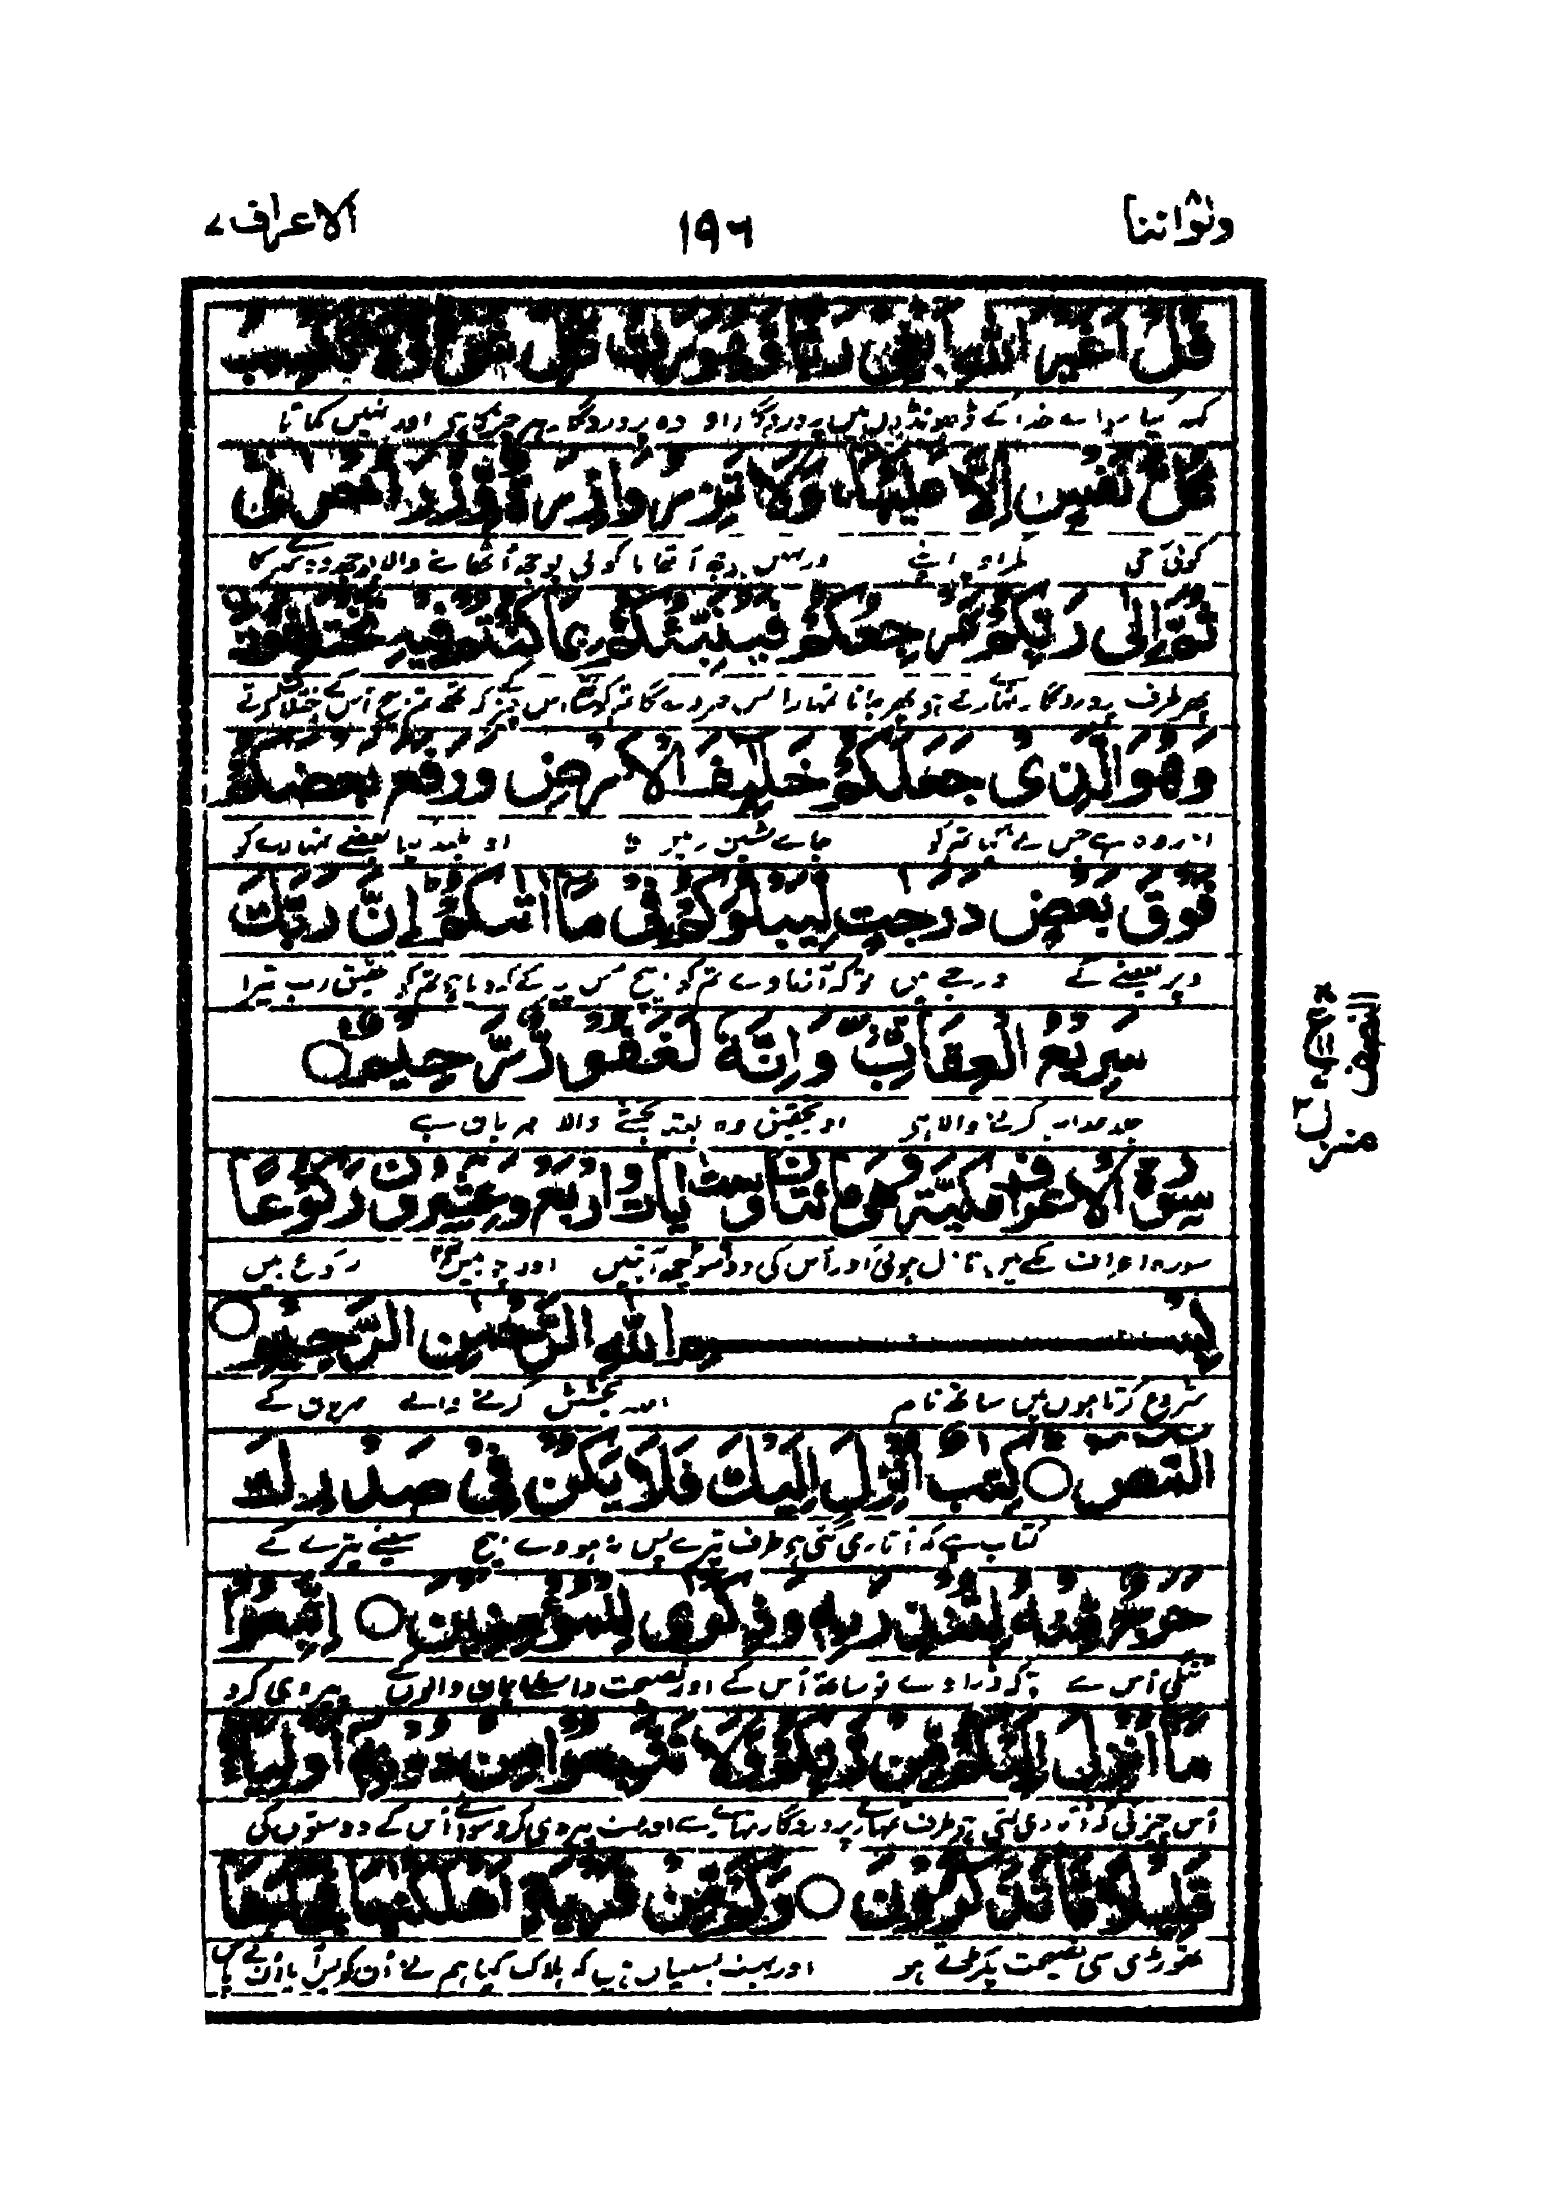 ولواننا ١٩٦ الاعراف ٧
قُلْ أَغَيْرَ اللَّهِ أَبْغِي رَبًّا وَّهُوَ رَبُّ كُلِّ شَيْءٍ وَلَا تَكْسِبُ
کہہ کیا سوائے خدا کے ڈھونڈوں میں پروردگار اور وہ پروردگار ہر چیز کا ہے اور نہیں کماتا
كُلُّ نَفْسٍ إِلَّا عَلَيْهَا وَلَا تَزِرُ وَازِرَةٌ وِّزْرَ أُخْرٰى
کوئی جی مگر اوپر اپنے اور نہیں بوجھ اٹھاتا کوئی بوجھ اٹھانے والا بوجھ دوسرے کا
ثُمَّ إِلٰى رَبِّكُمْ مَّرْجِعُكُمْ فَيُنَبِّئُكُمْ بِمَا كُنْتُمْ فِيهِ تَخْتَلِفُونَ
پھر طرف پروردگار تمہارے ہے پھر جانا تمہارا پس خبر دے گا تم کو ساتھ اس چیز کہ تھے تم بیچ اس کے اختلاف کرتے
وَهُوَ الَّذِي جَعَلَكُمْ خَلٰٓئِفَ الْأَرْضِ وَرَفَعَ بَعْضَكُمْ
اور وہ ہے جس نے کیا تم کو جانشین زمین کا اور بلند کیا بعضے تمہارے کو
فَوْقَ بَعْضٍ دَرَجٰتٍ لِّيَبْلُوَكُمْ فِي مَا اٰتٰىكُمْ إِنَّ رَبَّكَ
اوپر بعضے کے درجے میں تو کہ آزماوے تم کو بیچ اس چیز کے کہ دیا ہے تم کو تحقیق رب تیرا
سَرِيعُ الْعِقَابِ وَإِنَّهٗ لَغَفُورٌ رَّحِيمٌ
جلد عذاب کرنے والا ہے اور تحقیق وہ البتہ بخشنے والا مہربان ہے
سورة الاعراف مكية وهي مائتان وست ايات واربع وعشرون ركوعا
سورہ اعراف مکے میں نازل ہوئی اور اس کی دو سو چھ آیتیں اور چوبیس رکوع ہیں
بِسْمِ اللَّهِ الرَّحْمٰنِ الرَّحِيمِ
شروع کرتا ہوں میں ساتھ نام اللہ بخشش کرنے والے مہربان کے
الٓمٓصٓ كِتٰبٌ أُنْزِلَ إِلَيْكَ فَلَا يَكُنْ فِي صَدْرِكَ
کتاب ہے کہ اتاری گئی ہے طرف تیرے پس نہ ہووے بیچ سینے تیرے کے
حَرَجٌ مِّنْهُ لِتُنْذِرَ بِهٖ وَذِكْرٰى لِلْمُؤْمِنِينَ اِتَّبِعُوا
تنگی اس سے تو کہ ڈراوے تو ساتھ اس کے اور نصیحت واسطے ایمان والوں کے پیروی کرو
مَا أُنْزِلَ إِلَيْكُمْ مِّنْ رَّبِّكُمْ وَلَا تَتَّبِعُوا مِنْ دُونِهٖ أَوْلِيَاءَ
اس چیز کی کہ اتاری گئی ہے طرف تمہارے پروردگار تمہارے سے اور مت پیروی کرو سوائے اس کے دوستوں کی
قَلِيلًا مَّا تَذَكَّرُونَ وَكَمْ مِّنْ قَرْيَةٍ أَهْلَكْنٰهَا فَجَاءَهَا
تھوڑی سی نصیحت پکڑتے ہو اور بہت بستیاں ہیں کہ ہلاک کیا ہم نے ان کو پس آیا ان کے پاس
النصف
منزل ٢